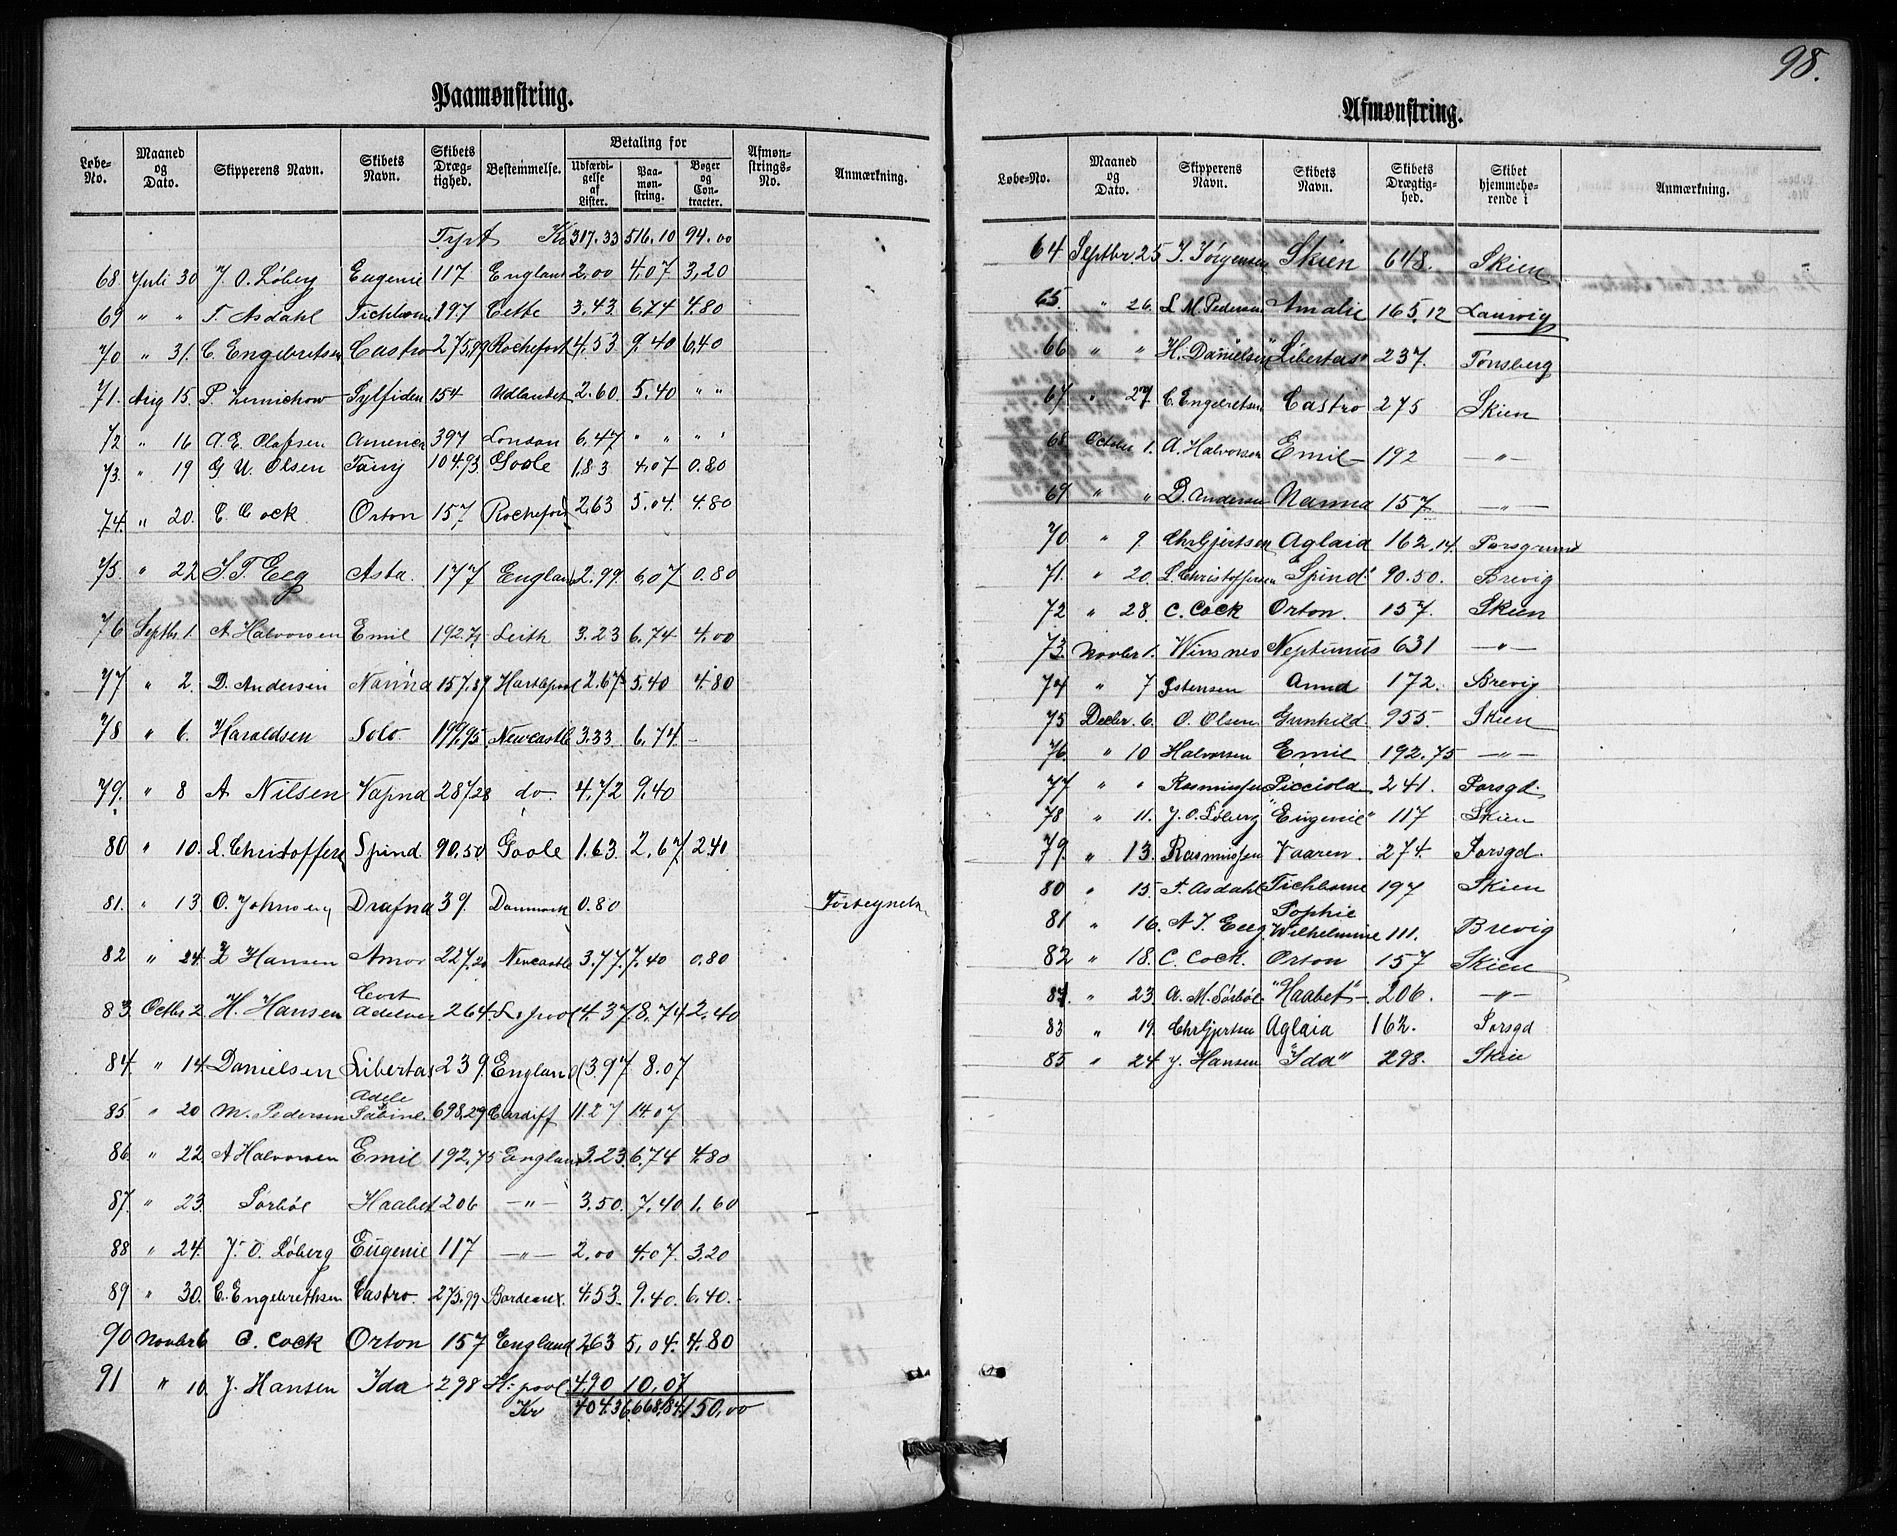 98.
Paamønstring.
Løbe-No. | Maaned og Dato. | Skipperens Navn. | Skibets Navn. | Skibets Drægtighed. | Bestemmelse. | Betaling for | Udfærdigelse af Lister. | Paamønstring. | Bøger og Contracter. | Afmønstrings-No. | Anmærkning.
Kr 317.33 516.10 94.00
68 Juli 30 J. O. Løberg Eugenie 117 England 2.00 4.07 3,20
69 " " T. Asdahl Tichborne 197 Cette 3.43 6.74 4.80
70 " 31. C. Engebretsen Castro 275,99 Rochefort 4.53 9.40 6,40
71. Aug 15. P. Sylfiden 154 Udlandet 2.60 5.40 " "
72 " 16 A. E. Olafsen America 397 London 6,47 " " " "
73. " 19 G. U. Olsen 104.93 Goole 1.83 4.07 0.80
74. " 20. C. Cock Orton 157 Rochefort 2.63 5.04. 4.80
75. " 22 Eeg Asta. 177 England 2.99 6,07 0.80
76 Septbr. 1. A Halvorsen Emil 192.75 Leith 3.23 6.74 4.00
77 " 2. D. Andersen Nanna 157.87 Hartlepool 2.67 5.40 4.80
78 " 6. Haraldsen Solo 199,95 Newcastle 3.33 6,74 -
79. " 8 A Nilsen Vapna 287,28 do. 4.72 9.40
80 " 10. L. Christoffersen Spind 90.50 Goole 1.63. 2.67 2.40
81. " 13. O. Johnsen Drafna 39. Danmark 0.80
82 " 24. Z Hansen Amor 227,20 Newcastle 3.77. 7.40 0.80
83 Octbr 2. H. Hansen Cort Adelaer 264 L. pool 4.37 8.74 2,40
84. " 14 Danielsen Libertas 239 England 3.97 8.07
85 " 20 M. Pedersen Adele Sabine. 698,29 Cardiff 11.27 14.07
86. " 22. A Halvorsen Emil 192,75 England 3.23. 6,74 4.80
87. " 23. Sørbøl Haabet 206 —"— 3.50. 7.40 1.60
88 " 24. J. O. Løberg Eugenie 117 —"— 2.00 4.07. 3.20
89 " 30. C. Engebrethsen Castro. 275.99 Bordeaux. 4.53 9.40. 6.40.
90 Novbr 6 C. Cock Orton 157 England 2,63 5,04. 4.80
91 " 10. J. Hansen Ida 298 H. pool 4.90 10.07
Kr 404.36 668,84 150,00
Afmønstring.
Løbe-No. | Maaned og Dato. | Skipperens Navn. | Skibets Navn. | Skibets Drægtighed. | Skibet hjemmehørende i | Anmærkning.
64 Septbr. 25 J. Jørgensen Skien 648. Skien
65. " 26. L. M. Pedersen Amalie 165.12 Laurvig
66 " " H. Danielsen "Libertas" 237. Tønsberg
67. " 27. C. Engebretsen Castro 275 Skien
68. October 1. A. Halvorsen Emil 192 —"—
69 " " D. Andersen Nanna 157. —"—
70 " 9. Chr Gjertsen Aglaia 162,14. Porsgrund
71. " 20. L. Christoffersen "Spind" 90.50. Brevig
72 " 28. C. Cock Orton. 157. Skien
73. Novbr 1. Winsnes Neptunus 631 —"—
74 " 7 Istensen Anna 172. Brevig
75 Decbr. 6. O. Olsen Gunhild 955. Skien
76. " 10 Halvorsen Emil 192.75 —"—
77 " " Rasmussen Picciola 241. Porsgd.
78 " 11. J. O. Løberg "Eugenie" 117 Skien
79. " 13. Rasmussen Vaaren. 274. Porsgd.
80 " 15. T. Asdahl Tichborne 197 Skien
81 " 16. A J. Eeg. Sophie Wilhelmine 111. Brevig
82 " 18. C. Cock. Orton 157 Skien
84. " 23. A. M. Sørbøl "Haabet" 206. —"—
83 " 19. Chr Gjertsen Aglaia 162. Porsgd
85 " 24. J. Hansen "Ida" 298. Skien